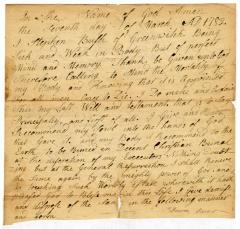 In the Name of God Amen
The Seventh day of March AD 1782
I Stephen of Greenwich Being
Sick and Weak in Body But of perfect
Mind and Memory. Thanks be given unto God
Therefore Calling to Mind the Mortality of
my Body and Knowing that it is Appointed
for all men once to Die I Do make and ordain
this my Last Will and Testament that is to Say
Principally, and first of all I Give and
Recommend my Soul into the Hands of God
that Gave it and my Body I Recommend to the
Earth to be Buried in Decent Christian Burial
at the Discretion of my Executors Nothing Doubting
but at the General Resurrection I shall Receive
the Same again by the mighty power of God and
as touching Such Worldly Estate wherewith it hath
pleased God to Bless me in this Life I Give demise
and Dispose of the Same in the following manner
and form